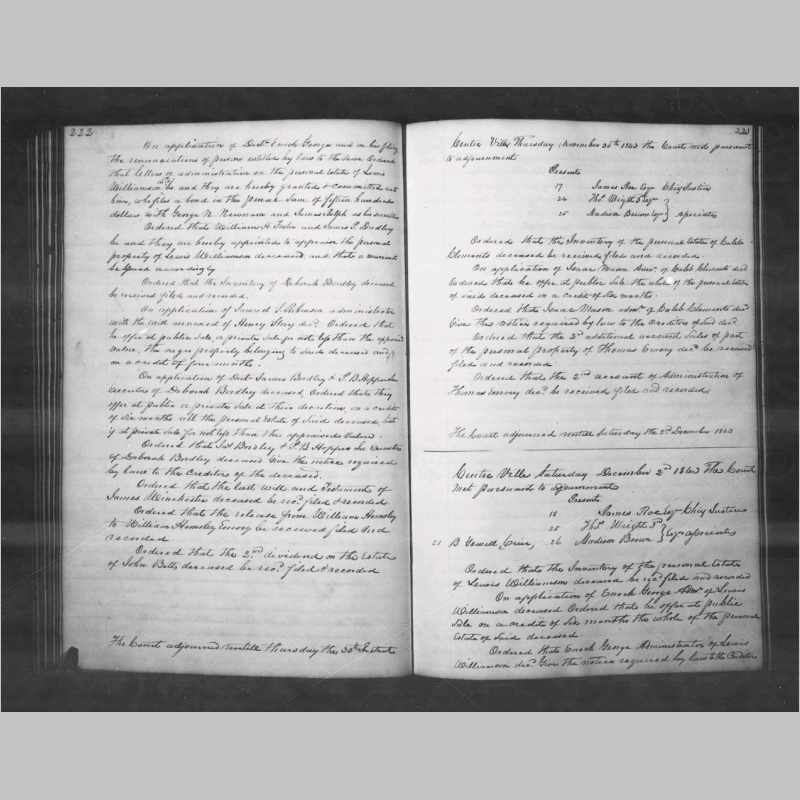 222
On application of Doct. Enoch George and on his filing
the renunciations of persons entitled by law to the same Ordered
that letters of administration on the personal estate of Lewis
Williamson be and they are hereby granted & committed unto
him, who files a bond in the penal Sum of fifteen hundred
dollars with George N. Newnam and James Ralph as his securities
Ordered that William H. and James P. Bradley
be and they are hereby appointed to appraise the personal
property of Lewis Williamson deceased and that a warrant
be issued accordingly
Ordered that the Inventory of Deborah Bradley deceased
be received filed and recorded.
On application of Samuel T. administrator
with the will annexed of Henry decd. Ordered that
he offer at public sale, or private sale for not less than the appraised
value, the negro property belonging to said deceased and,
on a credit of four months.
On application of Doct. James Bradley & P. B. Hopper
executors of Deborah Bradley deceased Ordered that they
offer at public or private sale at their discretion, on a credit
of six months all the personal Estate of Said deceased but
if at private sale for not less than the appraised value.
Ordered that Jas Bradley & P B Hopper Executors
of Deborah Bradley deceased Give the notice required
by law to the Creditors of the deceased.
Ordered that the last will and Testament of
James Winchester deceased be recd. filed & recorded
Ordered that the release from William Hemsley
to William Hemsley Emory be received filed and
recorded
Ordered that the 2nd dividend on the Estate
of John Betts deceased be recd. filed & recorded
The Court adjourned untill thursday the 30th Instant
221
Centre Ville Thursday November 30th 1843 the Court met pursuant
to adjournment
Present
17 James Roe Esqr Chief Justice
24 Thos. Wright 3d Esqr
25 Madison Brown Esqr } associates
Ordered that the Inventory of the personal Estate of Caleb
Clements deceased be received filed and recorded.
On application of Isaac Mason Admr. of Caleb Clements decd
Ordered that he offer at public Sale the whole of the personal estate
of said deceased on a credit of Six months.
Ordered that Isaac Mason admr. of Caleb Clements decd
Give the notice required by law to the creditors of said decd.
Ordered that the 2d additional account Sales of part
of the personal property of Thomas Emory decd. be received
filed and recorded
Ordered that the 2nd account of Administration of
Thomas Emory decd. be received filed and recorded
The Court adjourned untill Saturday the 2nd December 1843
Centre Ville Saturday December 2nd 1843 The Court
met pursuant to adjournment
Present
18 James Roe Esqr Chief Justice
25 Thos. Wright 3d
21 B Gewell Crier, 26 Madison Brown } Esqrs associates
Ordered that the Inventory of the personal Estate
of Lewis Williamson deceased be recd. filed and recorded
On application of Enoch George Admr. of Lewis
Williamson deceased Ordered that he offer at public
Sale on a credit of Six months the whole of the personal
Estate of Said deceased
Ordered that Enoch George Administrator of Lewis
Williamson decd. Give the notice required by law to the Creditors